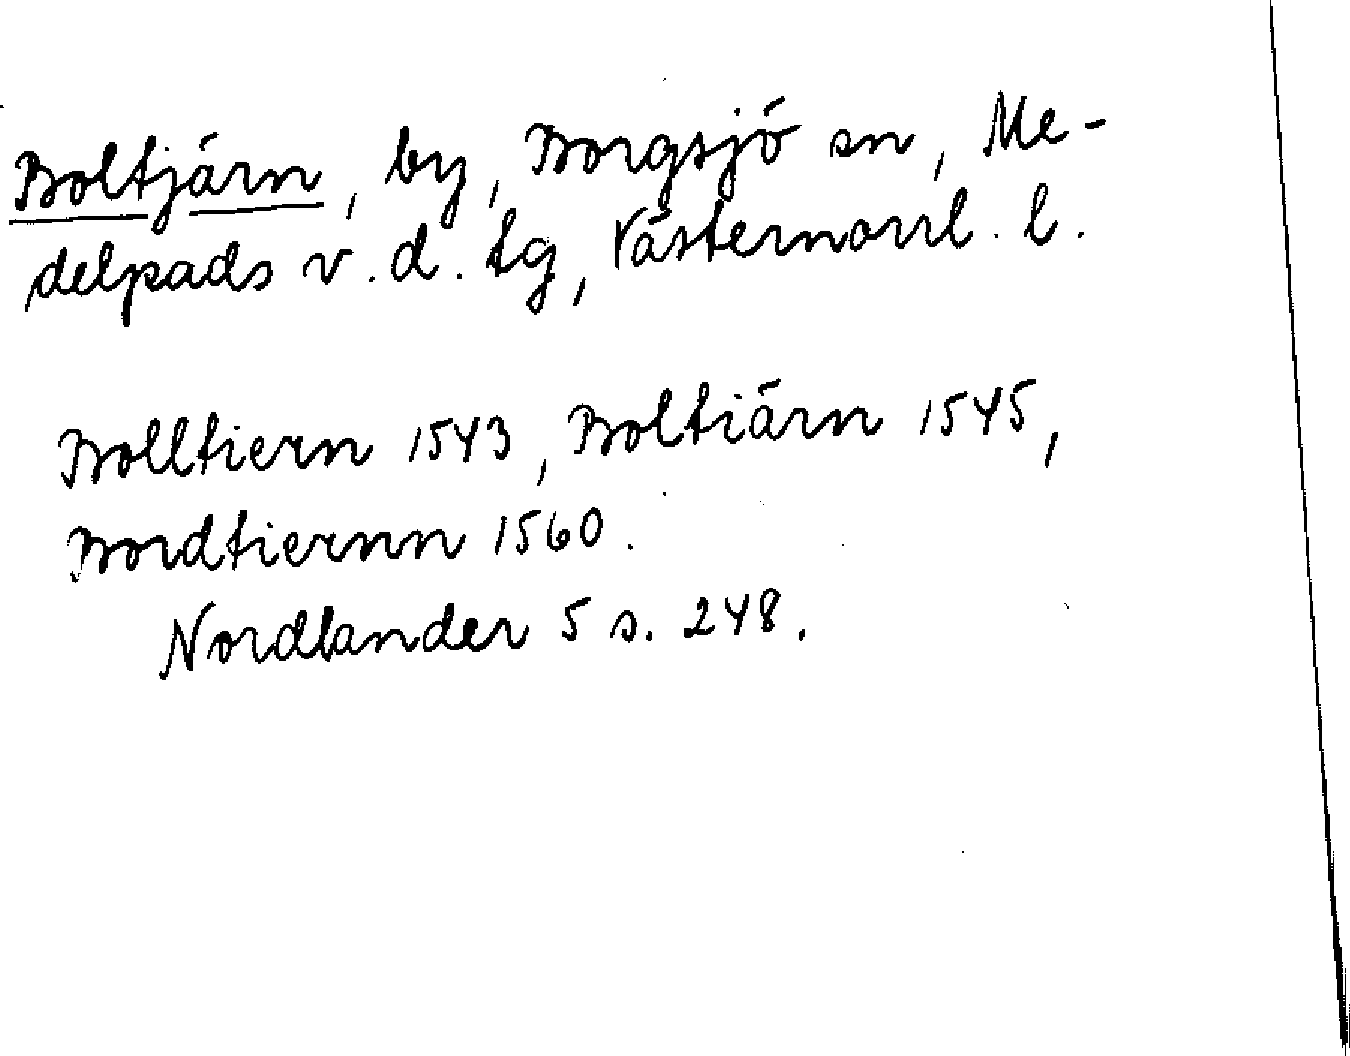 Boltjärn, by, Borgsjö sn, Me-
delpads v. d. tg, Västernorrl. l.
Bolltiern 1543, Boltiärn 1545,
Bordtiernn 1560.
Nordlander 5 s. 248.